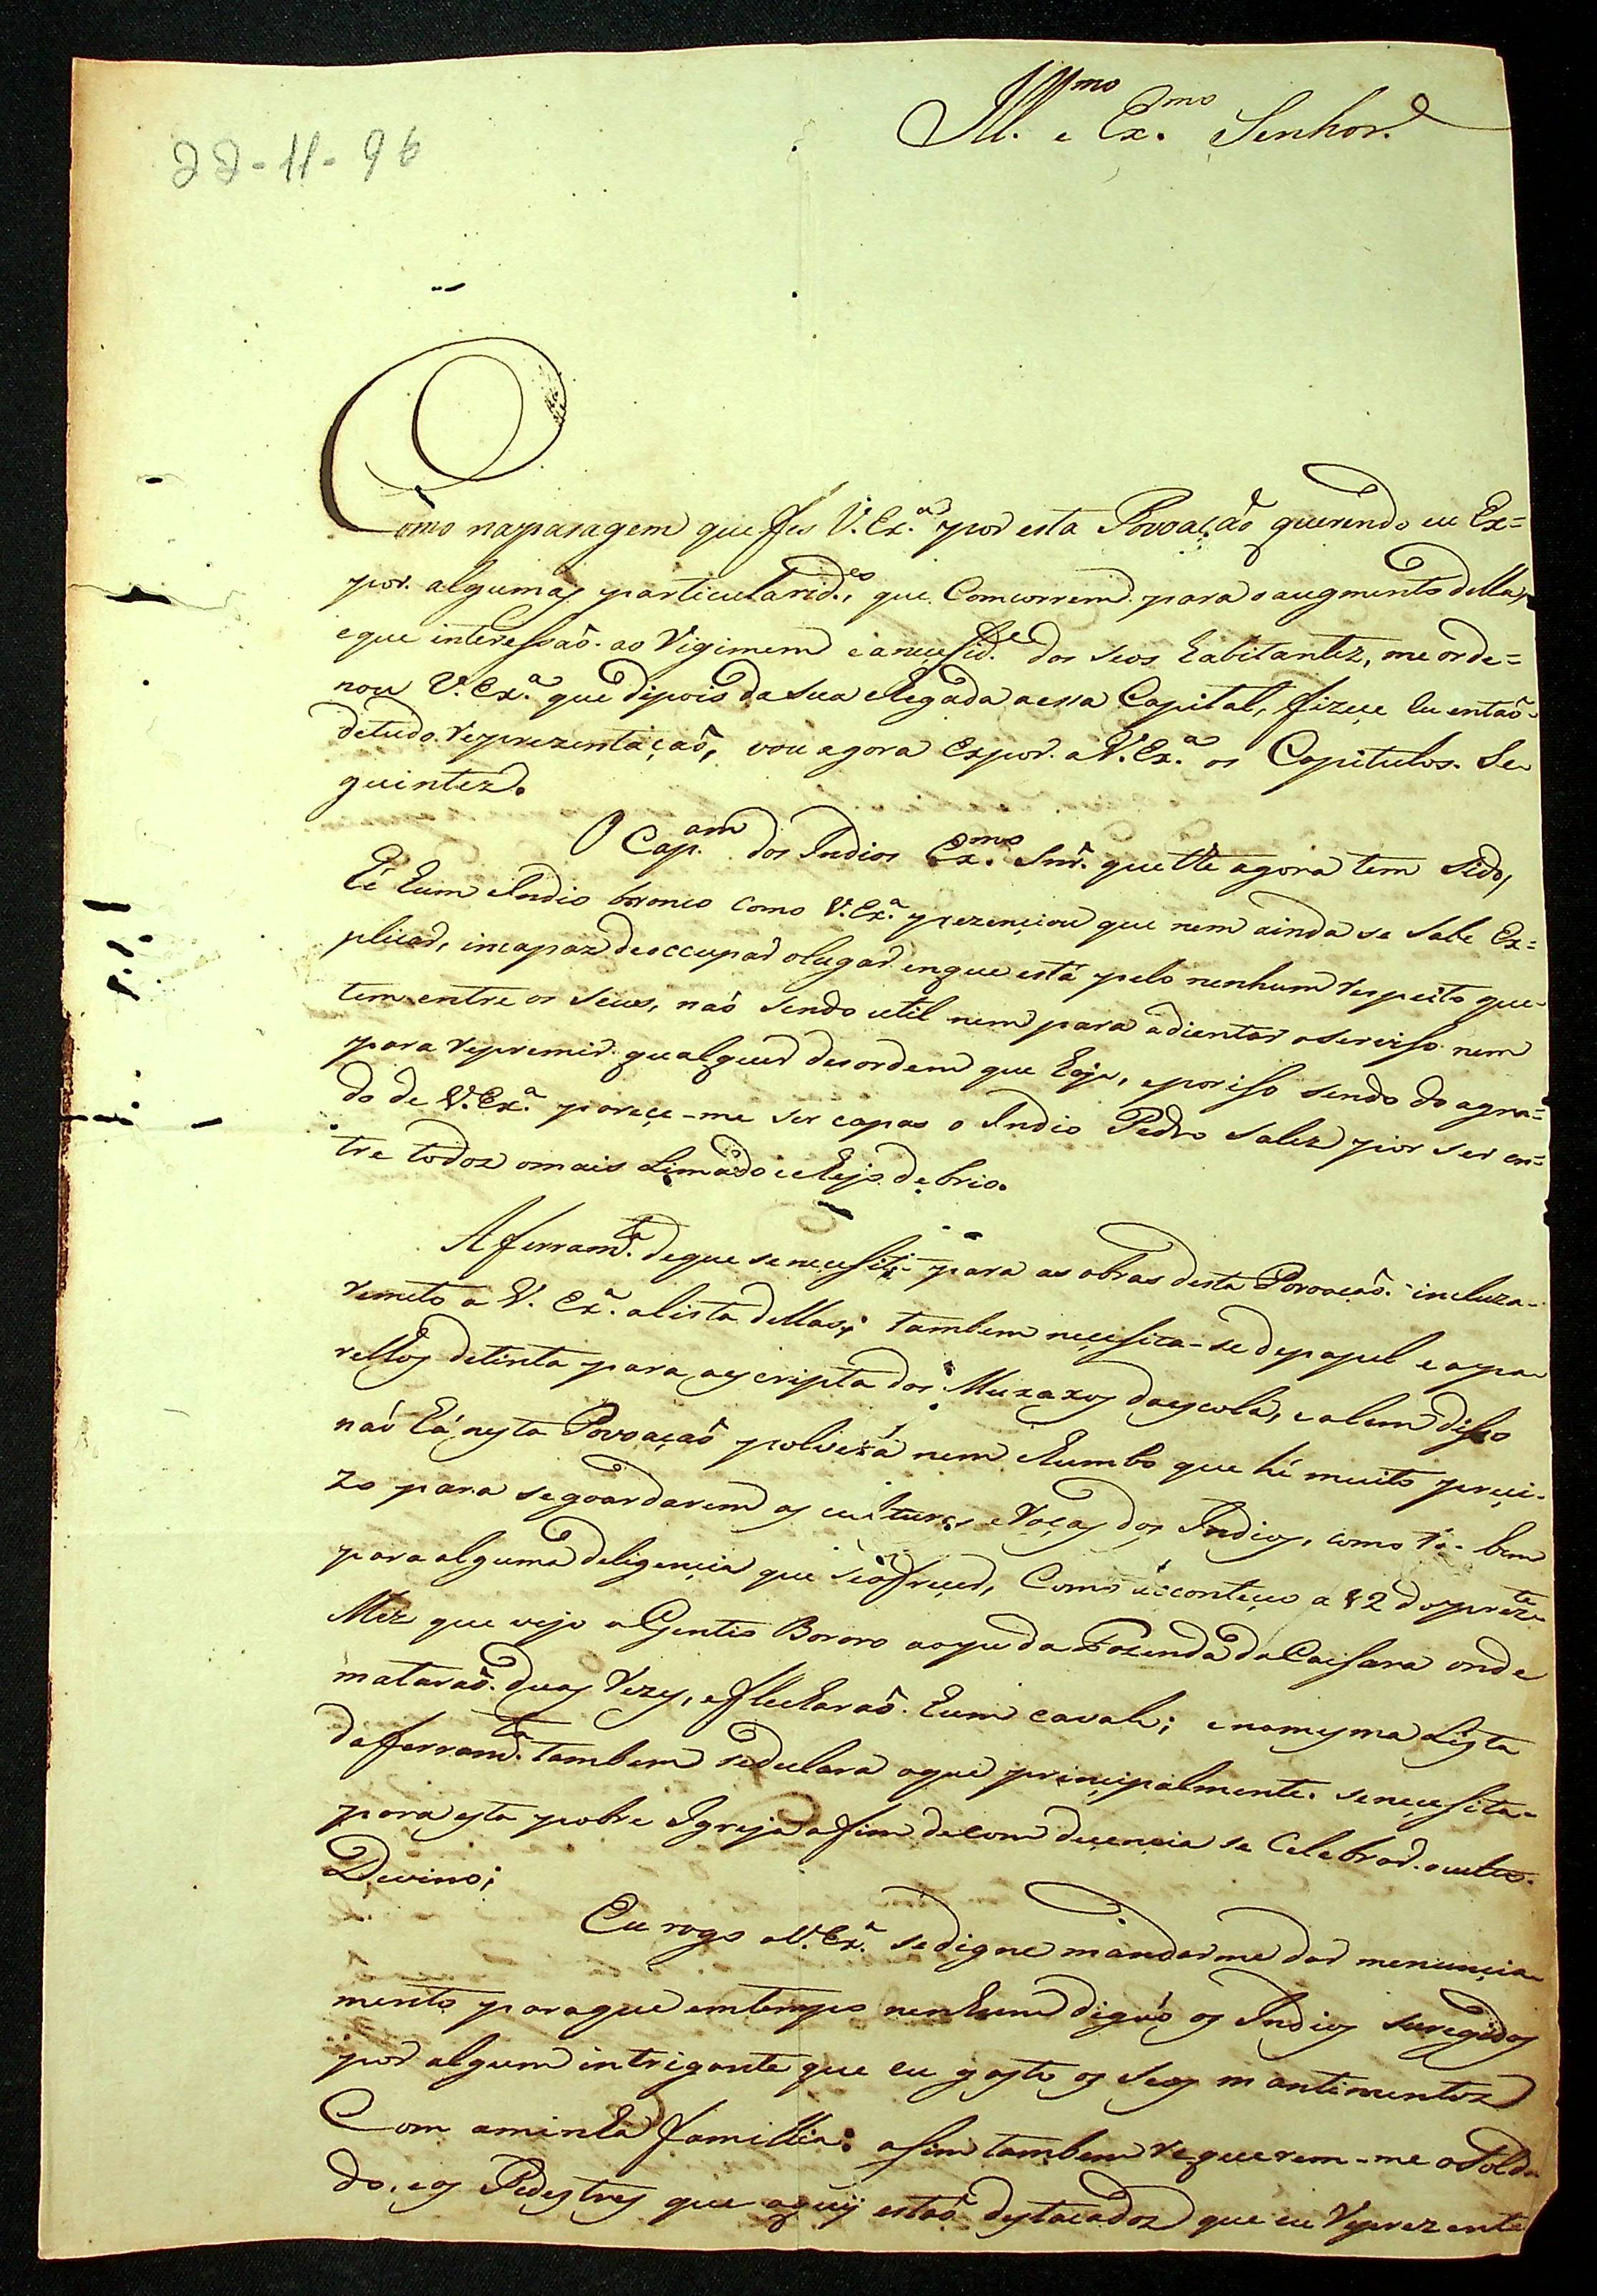 Ill.mo e Ex.mo Senhor.
22-11-96
Como na pasagem que fes V. Ex.a por esta Povoação querendo eu Ex=
por. algumas particularid.es, que Comcorrem para o augmento della,
e que interessaõ. ao Vigimem e a necesid.e dos seos habitantez, me orde=
nou V. Ex.a que dipois da sua chegada a essa Capital, fizeçe eu entaõ
de tudo. reprezentaçaõ, vou agora Expor. a V. Ex.a os Capitulos. Se
guintez.
O Cap.am dos Indios Ex.mo Snr. que tte agora tem sido,
hé hum Indio bronco como V. Ex.a prezenciou que nem ainda se sabe Ex=
plicar, incapaz de occupar o lugar en que está pelo nenhum respeito que
tem entre os seus, naõ sendo util nem para adientar o serviso nem
para repremir. qualquer desordem que haja, e por iso sendo do agra=
do de V. Ex.a pareçe-me ser capas o Indio Pedro Salez por ser en=
tre todoz o mais Limado e chejo de brio.
A ferram.ta de que se necesita para as obras desta Povoaçaõ. incluza
remeto a V. Ex.a a lista dellas; tambem neçesita-se de papel e apa
relhos de tinta para a escripta dos Muxaxos da escola, e alem disso
naõ há nesta Povoaçaõ polvera nem chumbo que hé muito preçi-
zo para se goardarem as culturas e Roças dos Indios, como tã-bem
para alguma deligençia que se ofreçer, Como aconteçeo a 12 do prez.te
Mez que vejo o Gentio Bororo ao pe da Fazenda da Caissara onde
mataraõ. duas Rezes, e flecharaõ. hum cavalo; e na mesma Lista
da ferram.ta tambem se declara o que prinçipalmente. se neçesita
para esta pobre Igreja a fim de com decencia se Celebrar. o culto.
Devino;
Eu rogo a V. Ex.a se digne mandarme dar
mento para que em tempo nenhum digaõ os Indios
por algum intrigante que eu gasto os seos mantimentoz
Com a minha familhia: asim tambem requerem-me o Solda
do, e os Pedestres que aquy estaõ destacadoz que eu Reprezente